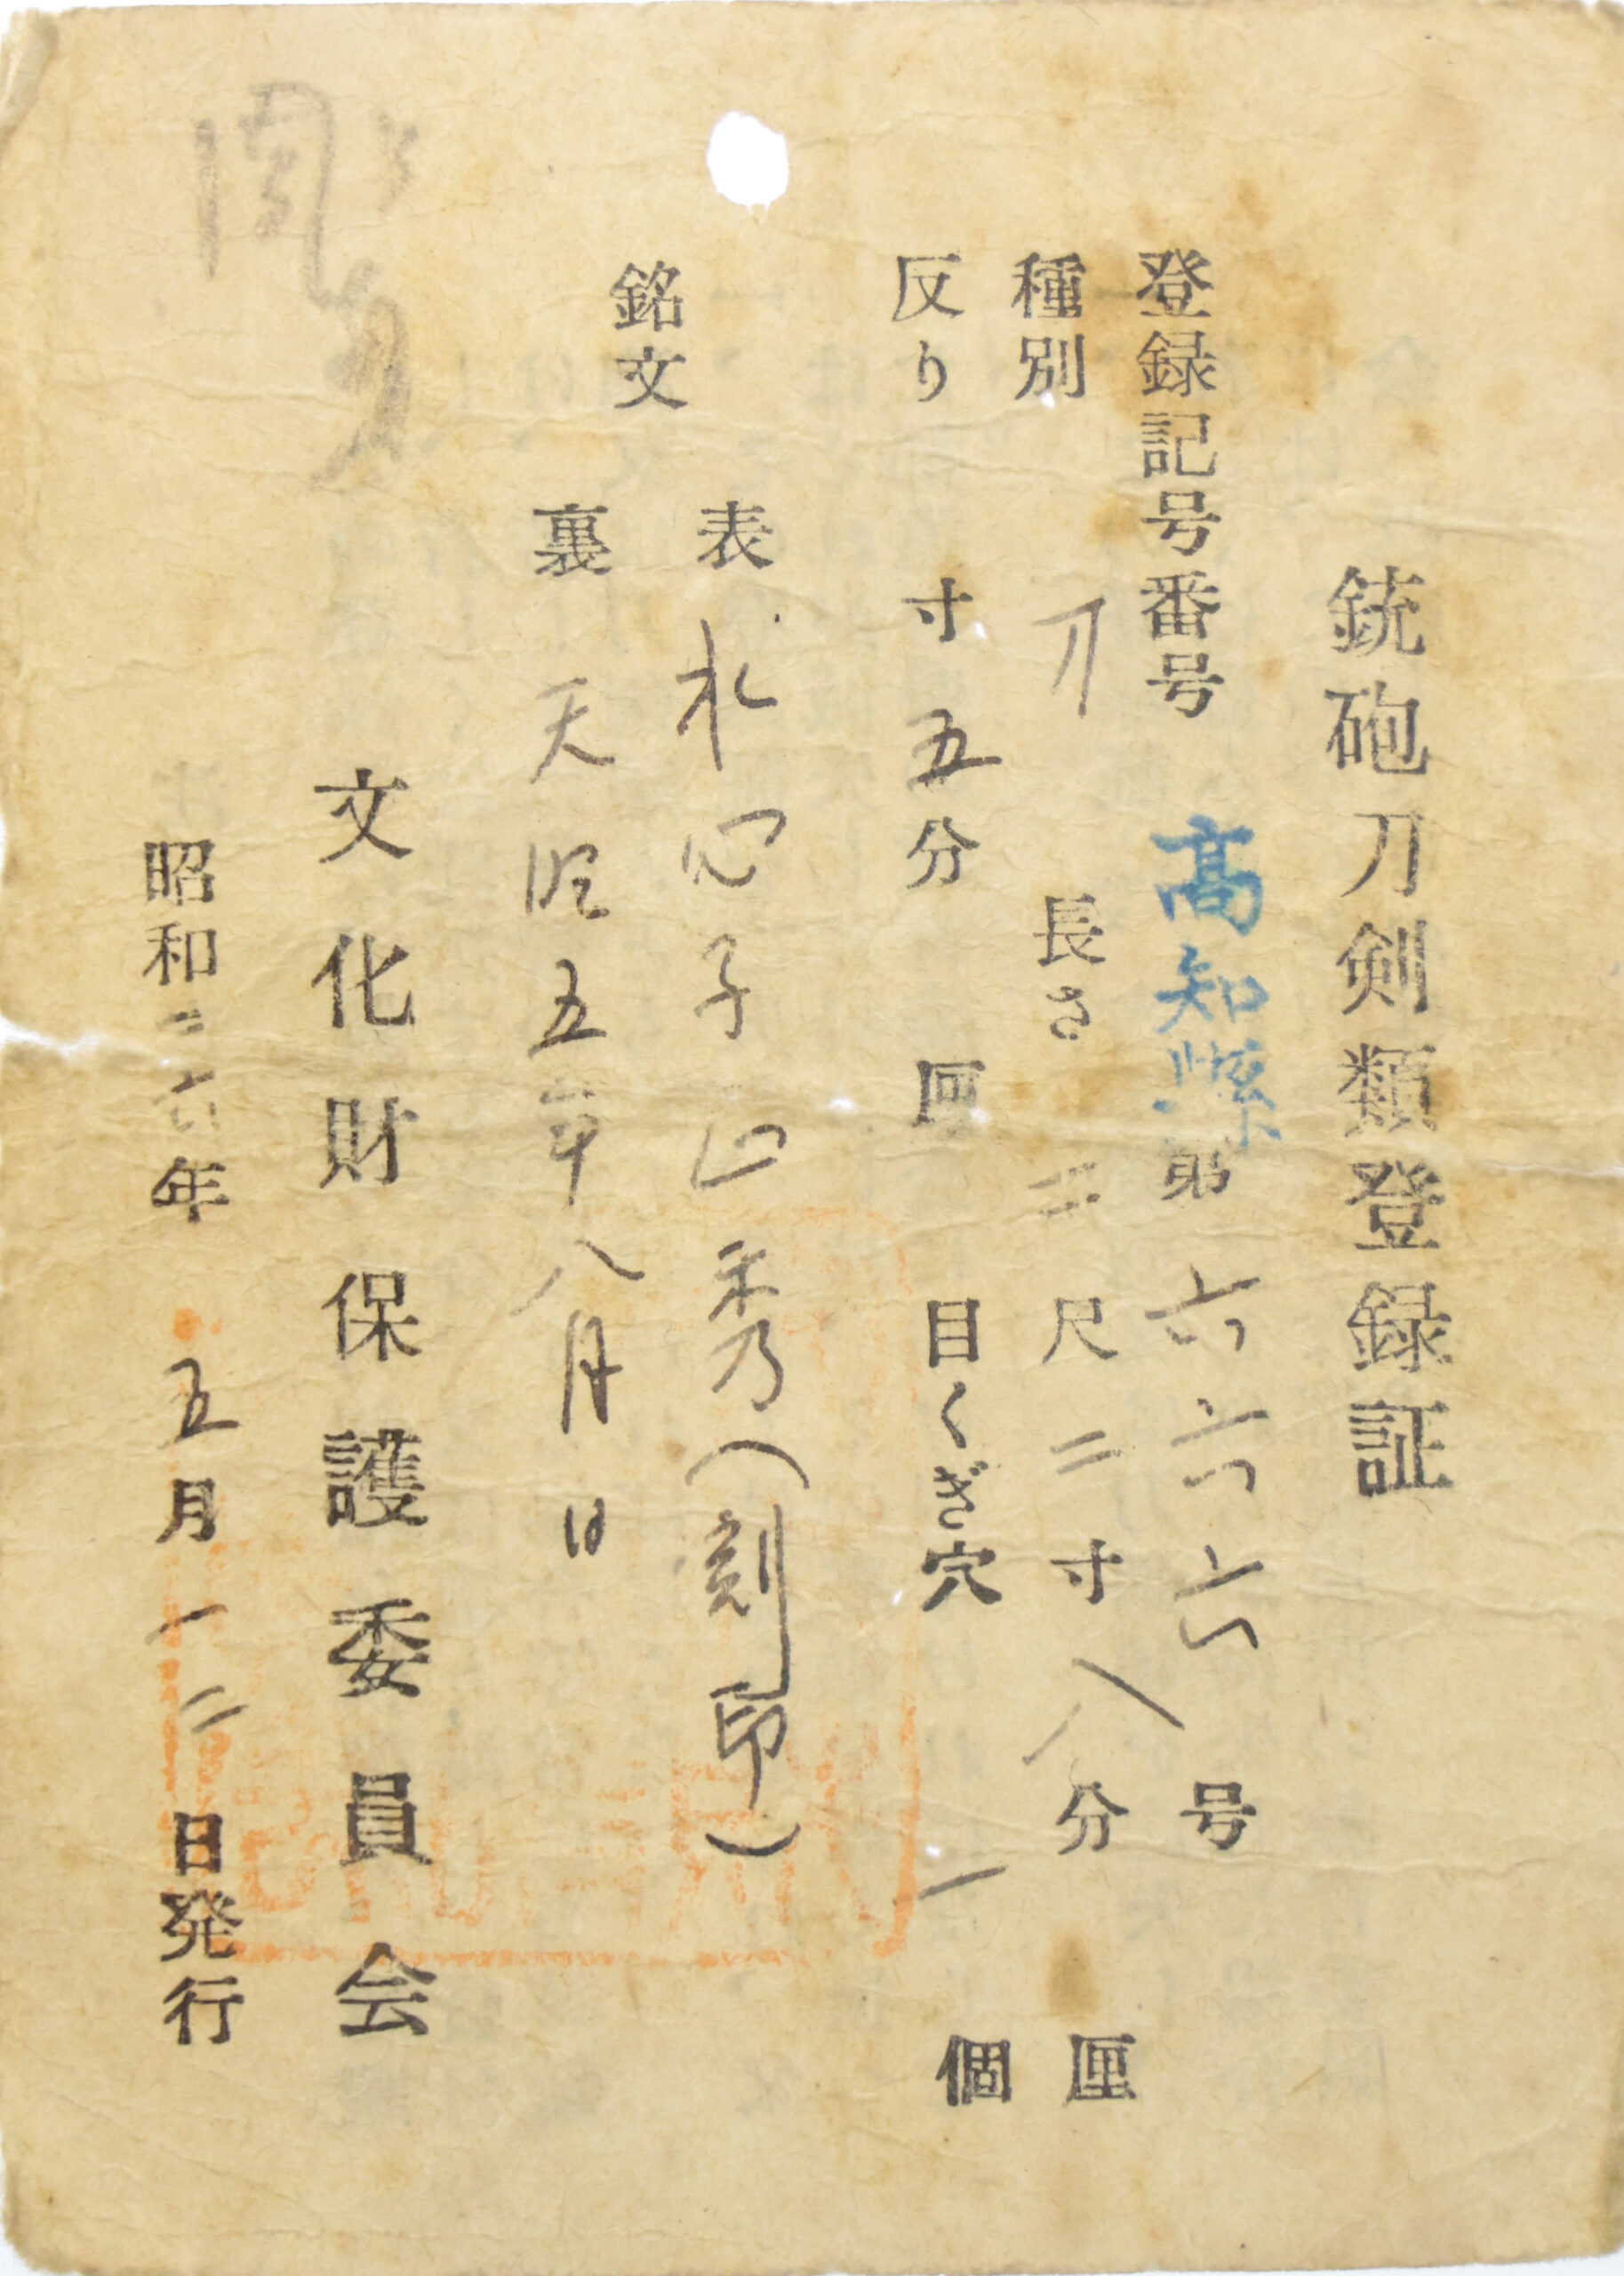 銃砲刀剣類登録証
登録記号番号 高知縣 第六六六六号
種別 刀 長さ 二尺二寸八分 厘
反り 寸五分 厘 目くぎ穴 一個
銘文
表 水心子正秀(刻印)
裏 天明五年八月日
文化財保護委員会
昭和二六年五月一二日発行